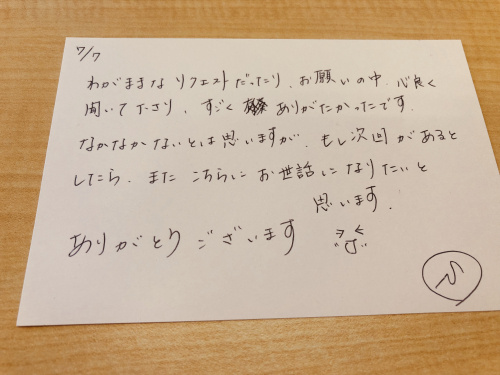 7/7
わがままなリクエストだったり、お願いの中、心良く
聞いて下さり、すごくありがたかったです。
なかなかないとは思いますが、もし次回があると
したら、また こちらに お世話に なりたいと
思います.
ありがとう ございます